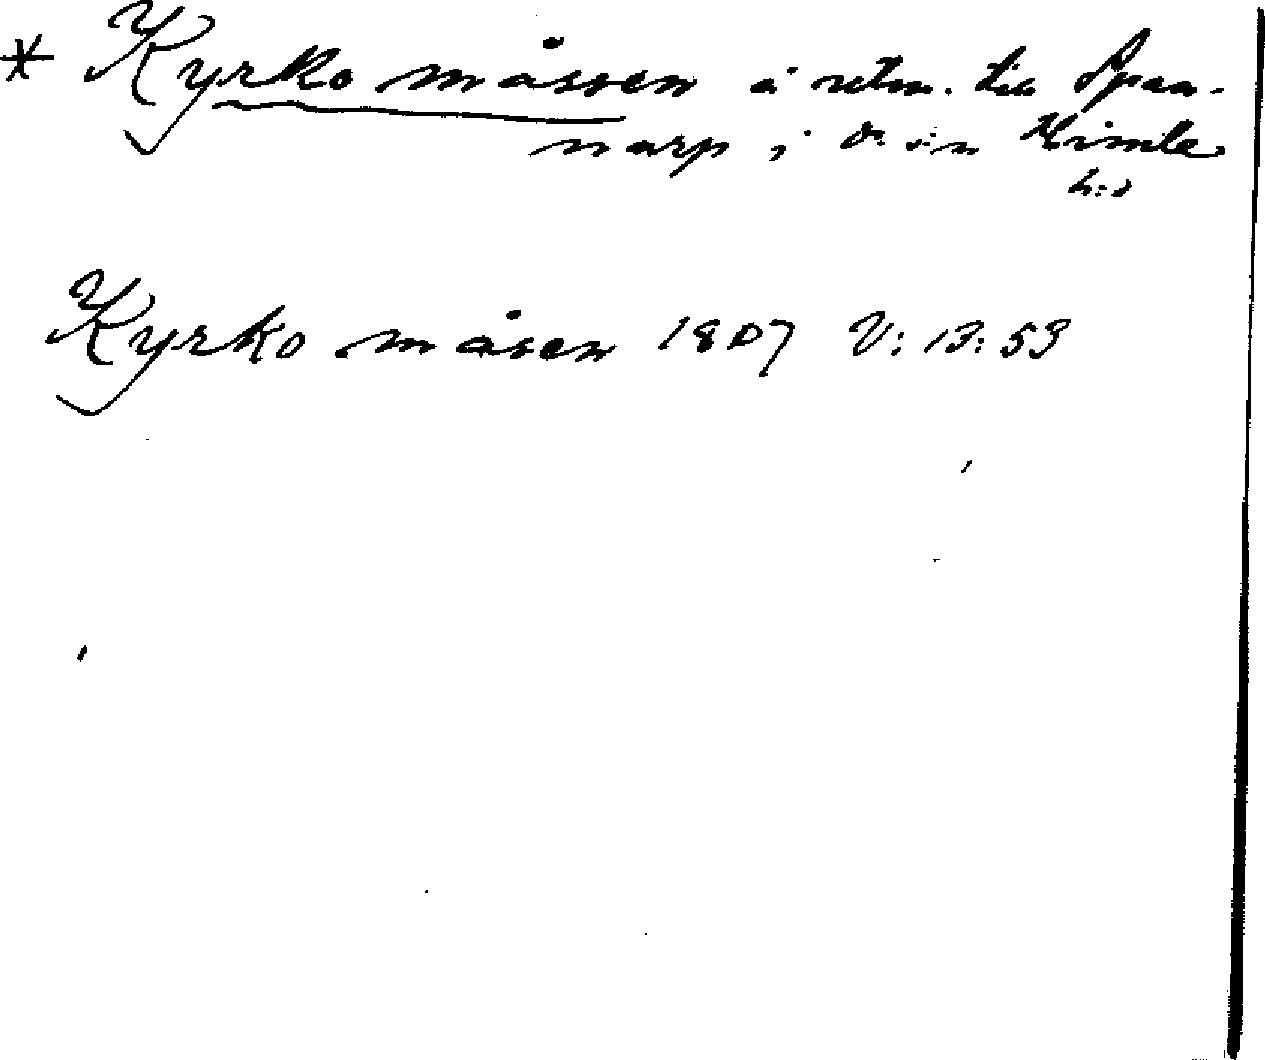 * Kyrko måssen å utm. till Span-
narp i d:o s:n Himle
h:d
Kyrko måsen 1807 V: 13: 53